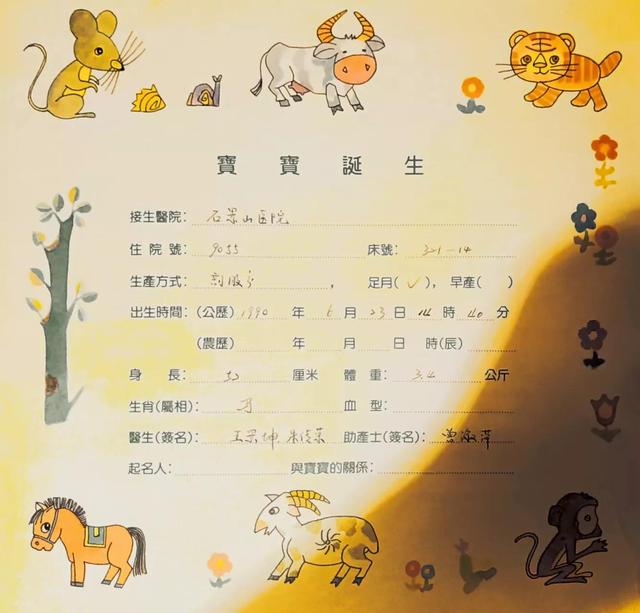 寶寶誕生
接生醫院： 石景山医院
住院號： 9055 床號： 321-14
生產方式： 剖腹产 ， 足月(✓)，早產( )
出生時間：(公歷) 1990 年 6 月 23 日 14 時 40 分
(農歷) 年 月 日 時(辰)
身 長： 厘米 體 重： 3.4 公斤
生肖(屬相)： 血 型：
醫生(簽名)： 助產士(簽名)：
起名人： 與寶寶的關係：